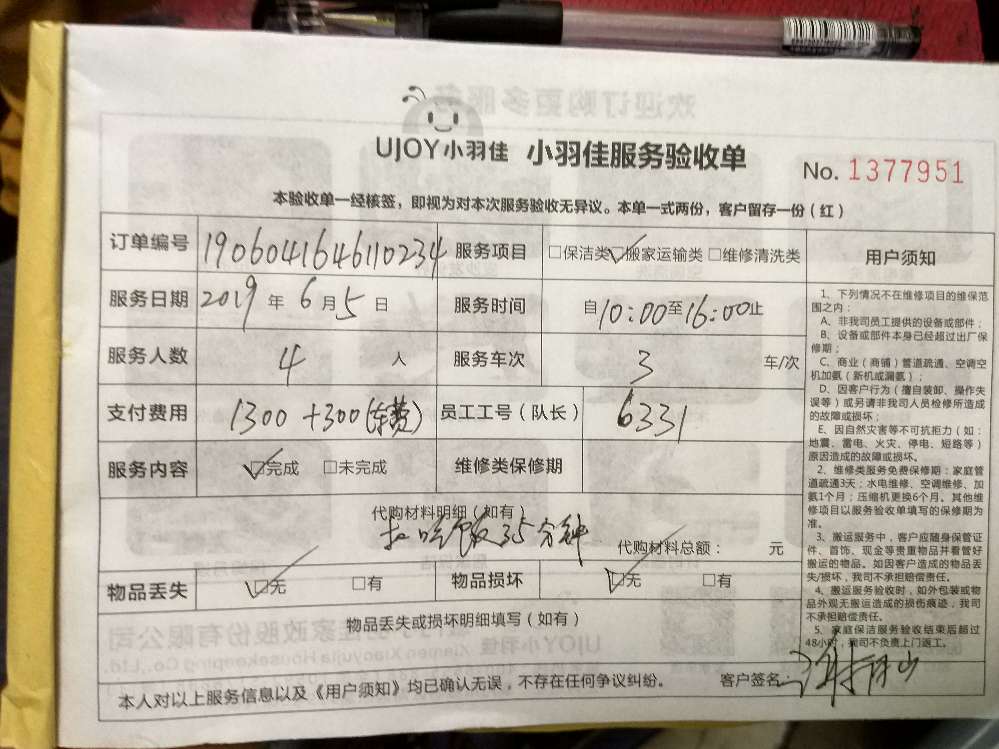 UJOY小羽佳 小羽佳服务验收单
No. 1377951
本验收单一经核签，即视为对本次服务验收无异议。本单一式两份，客户留存一份（红）
订单编号 1906041646110234 服务项目 □保洁类 ☑搬家运输类 □维修清洗类
服务日期 2019 年 6 月 5 日 服务时间 自10:00至16:00止
服务人数 4 人 服务车次 3 车/次
支付费用 1300+300(车费) 员工工号（队长） 6331
服务内容 ☑完成 □未完成 维修类保修期
代购材料明细（如有）
扣吃饭35分钟
代购材料总额： 元
物品丢失 ☑无 □有 物品损坏 ☑无 □有
物品丢失或损坏明细填写（如有）
本人对以上服务信息以及《用户须知》均已确认无误，不存在任何争议纠纷。 客户签名
用户须知
1、下列情况不在维修项目的维保范
围之内：
A、非我司员工提供的设备或部件；
B、设备或部件本身已经超过出厂保
修期；
C、商业（商铺）管道疏通、空调空
机加氨（新机或漏氨）；
D、因客户行为（擅自装卸、操作失
误等）或另请非我司人员检修所造成
的故障或损坏；
E、因自然灾害等不可抗拒力（如：
地震、雷电、火灾、停电、短路等）
原因造成的故障或损坏。
2、维修类服务免费保修期：家庭管
道疏通3天；水电维修、空调维修、加
氨1个月；压缩机更换6个月。其他维
修项目以服务验收单填写的保修期为
准。
3、搬运服务中，客户应随身保管证
件、首饰、现金等贵重物品并看管好
搬运的物品。如因客户造成的物品丢
失/损坏，我司不承担赔偿责任。
4、搬运服务验收时，如外包装或物
品外观无搬运造成的损伤痕迹，我司
不承担赔偿责任。
5、家庭保洁服务验收结束后超过
48小时，我司不负责上门返工。